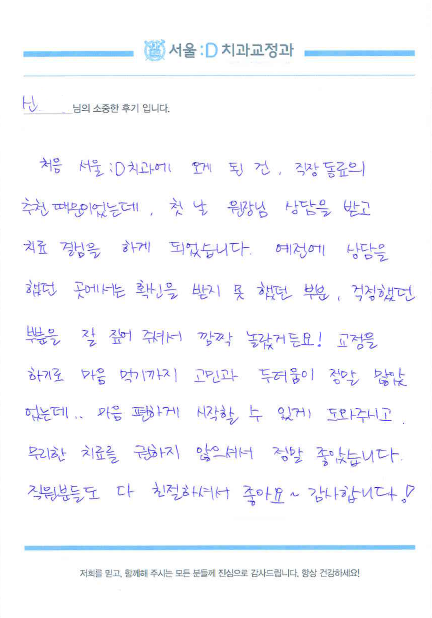 서울:D 치과교정과
신 님의 소중한 후기 입니다.
처음 서울:D치과에 오게 된 건, 직장동료의
추천 때문이었는데, 첫 날 원장님 상담을 받고
치료 결심을 하게 되었습니다. 예전에 상담을
했던 곳에서는 확신을 받지 못 했던 부분, 걱정했던
부분을 잘 짚어 주셔서 깜짝 놀랐거든요! 교정을
하기로 마음 먹기까지 고민과 두려움이 정말 많았
었는데.. 마음 편하게 시작할 수 있게 도와주시고,
무리한 치료를 권하지 않으셔서 정말 좋았습니다.
직원분들도 다 친절하셔서 좋아요~ 감사합니다!
저희를 믿고, 함께해 주시는 모든 분들께 진심으로 감사드립니다. 항상 건강하세요!